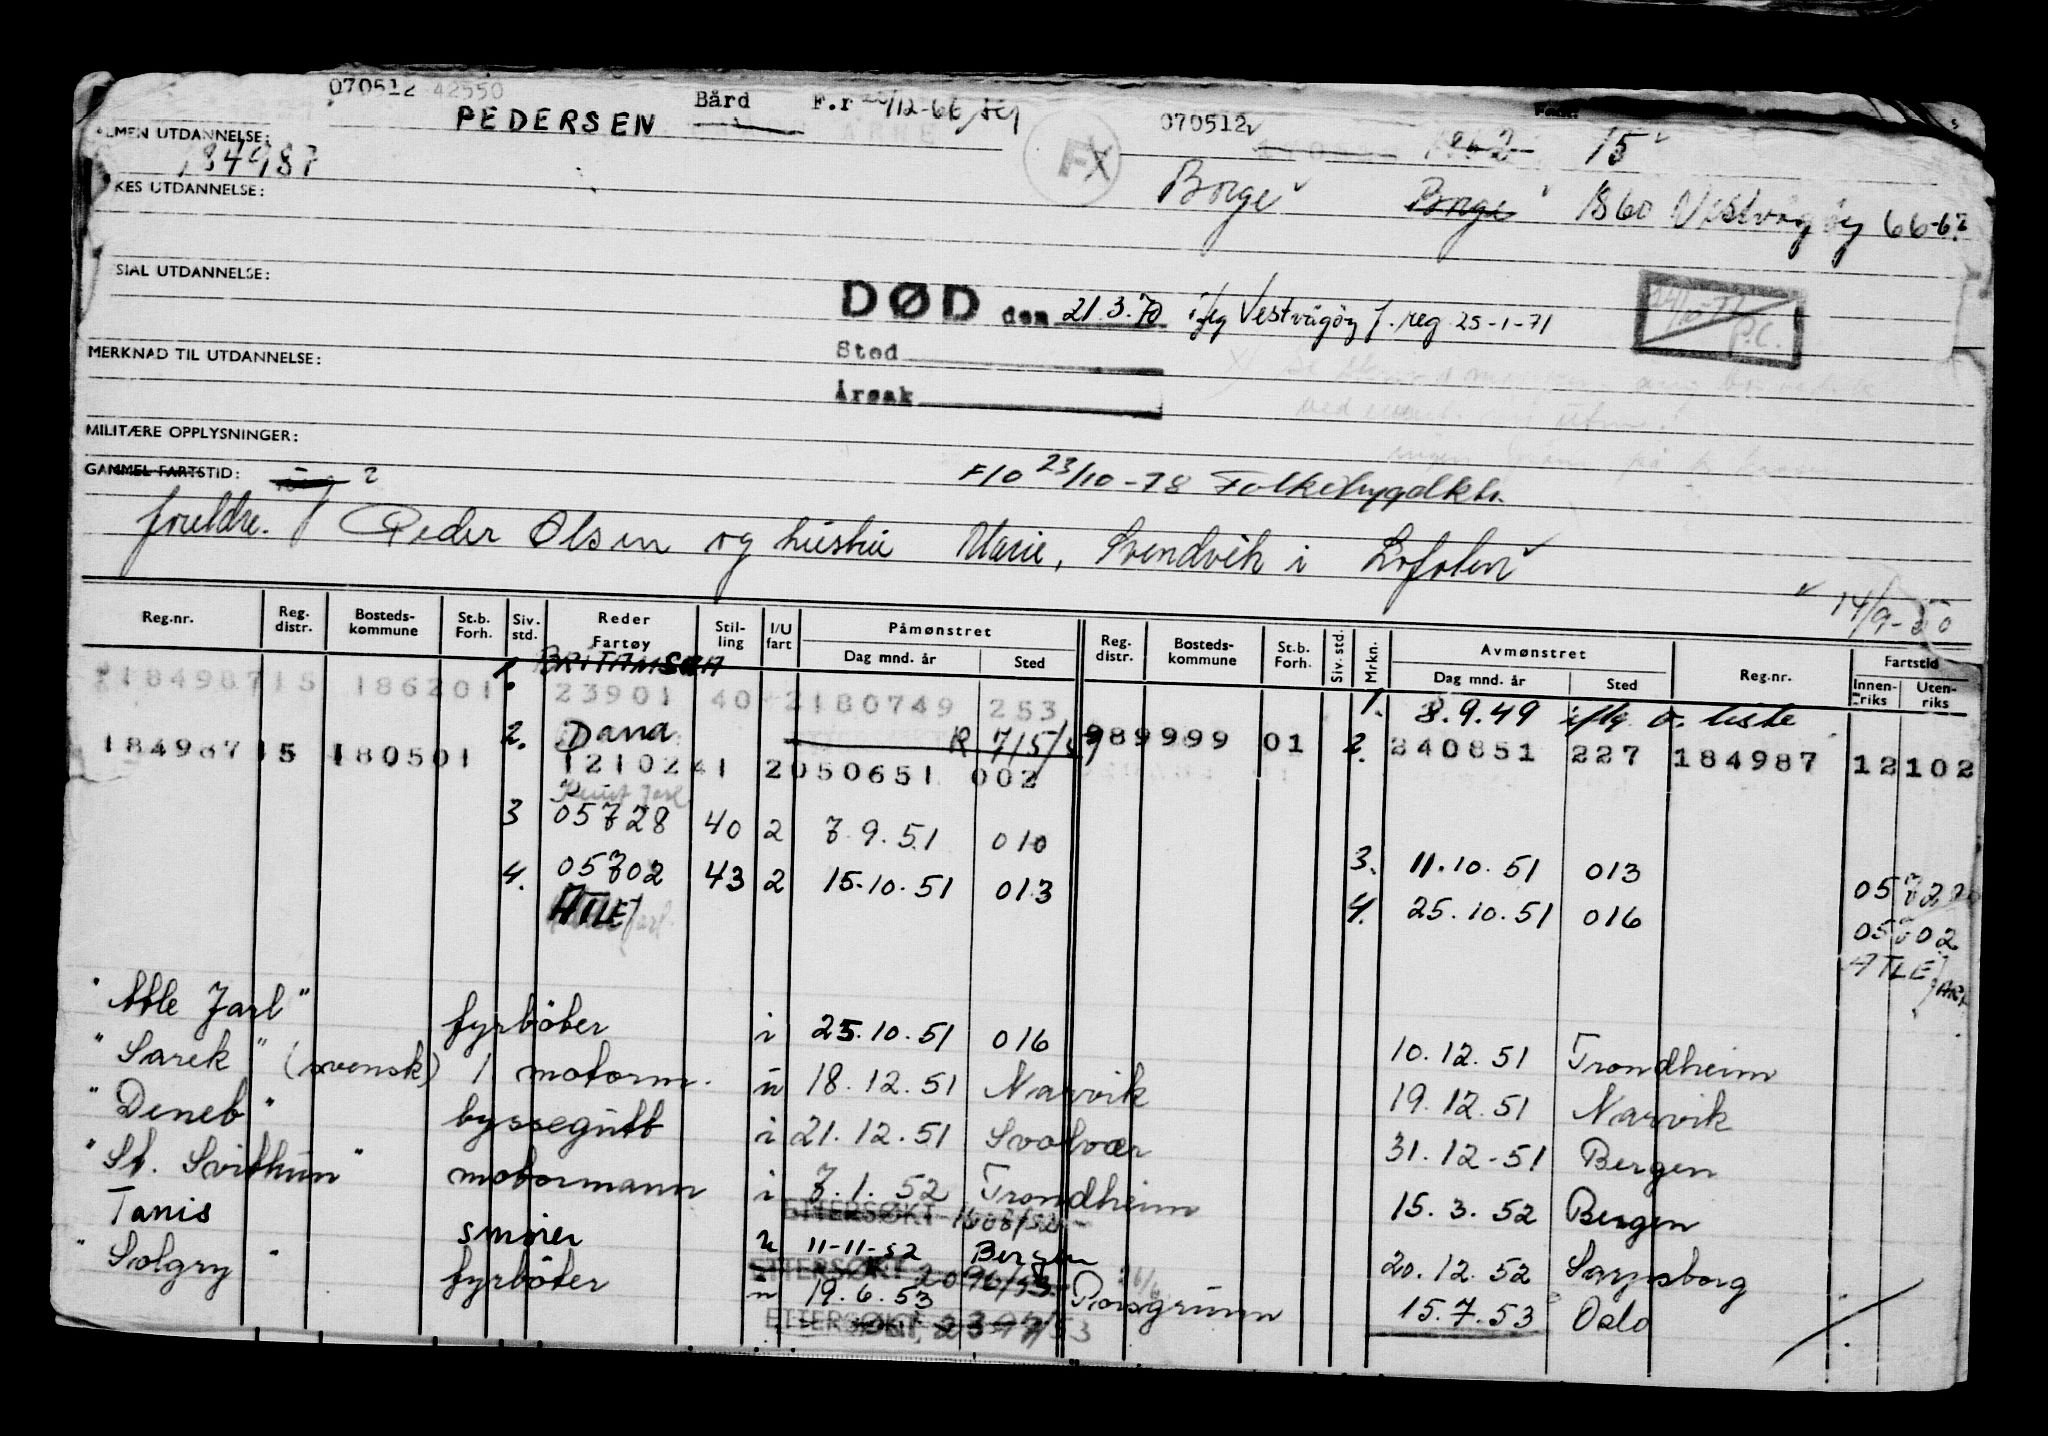 070512 42550
PEDERSEN Bård F.r /12-66
070512 15
ALMEN UTDANNELSE:
184987
FX
KES UTDANNELSE:
Borge Borge 1860 Vestvågøy 66-67
SIAL UTDANNELSE:
DØD den 21.3.70 iflg Vestvågøy f.reg 25-1-71
P.C.
Sted
MERKNAD TIL UTDANNELSE:
Årsak
MILITÆRE OPPLYSNINGER:
GAMMEL FARTSTID: ?
F/O 23/10-78 Folketrygdktr.
foreldre. Peder Olsen og hustru Marie, Svendvik i Lofoten
14/9-50
Reg.nr. Reg. distr. Bosteds-kommune St.b. Forh. Siv. std. Reder Fartøy Stil-ling I/U fart Påmønstret Dag mnd. år Sted Reg. distr. Bosteds-kommune St.b. Forh. Siv. std. Mrkn. Avmønstret Dag mnd. år Sted Reg.nr. Fartstid Innen-riks Uten-riks
1. BRITAMSEA 1. 8.9.49 iflg. o. liste
218498715 186201 23901 40 2180749 253
2. Dana R 715/ 989999 01 2. 240851 227 184987 12 102
184987 15 180501 1210241 2050651 002
3 05728 40 2 7.9.51 010 3. 11.10.51 013 05722
4. 05702 43 2 15.10.51 013 4. 25.10.51 016 05702
ATLE J ATLE JARL
"Atle Jarl" fyrböter i 25.10.51 016 10.12.51 Trondheim
"Sarek" (svensk) 1 motorm. u 18.12.51 Narvik 19.12.51 Narvik
"Deneb" byssegutt i 21.12.51 Svolvær 31.12.51 Bergen
"St. Svithun" motormann i 7.1.52 Trondheim 15.3.52 Bergen
ETTERSØKT 1608/52
Tanis smörer u 11-11-52 Bergen 20.12.52 Sarpsborg
ETTERSØKT 2096/53
"Solgry" fyrböter u 19.6.53 Porsgrunn 15.7.53 Oslo
ETTERSØKT 2397/53